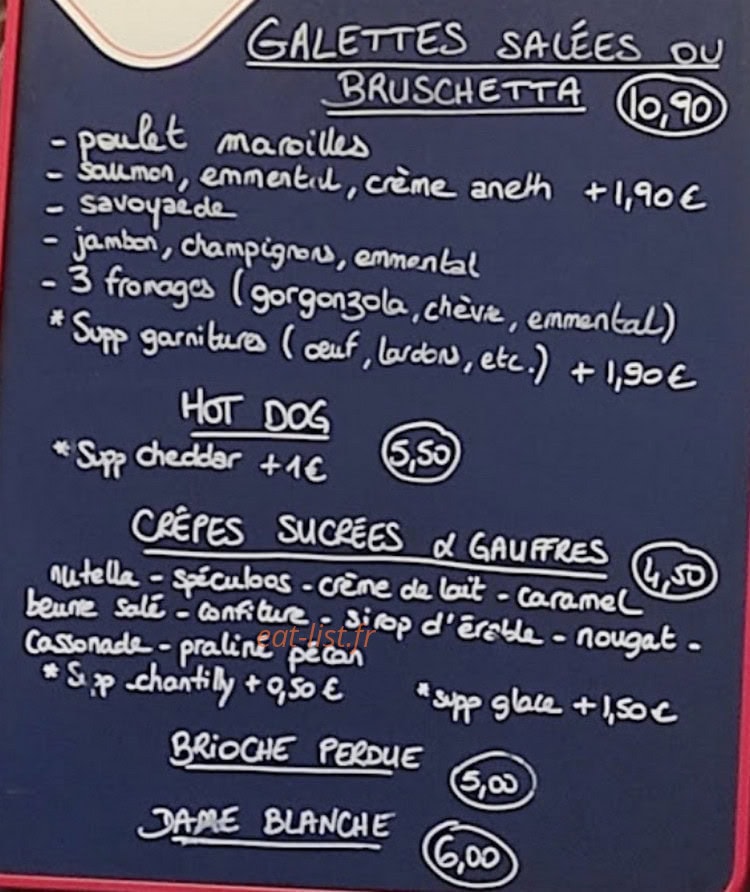 GALETTES SALÉES OU
BRUSCHETTA 10,90
- poulet maroilles
- saumon, emmental, crème aneth +1,90€
- savoyarde
- jambon, champignons, emmental
- 3 fromages (gorgonzola, chèvre, emmental)
* Supp garnitures (oeuf, lardons, etc.) +1,90€
HOT DOG
* Supp cheddar +1€ 5,50
CRÊPES SUCRÉES & GAUFFRES 4,50
nutella - spéculoos - crème de lait - caramel
beurre salé - confiture - sirop d'érable - nougat -
cassonade - praliné pécan
eat-list.fr
* Supp chantilly +0,50€ * supp glace +1,50€
BRIOCHE PERDUE 5,00
DAME BLANCHE 6,00